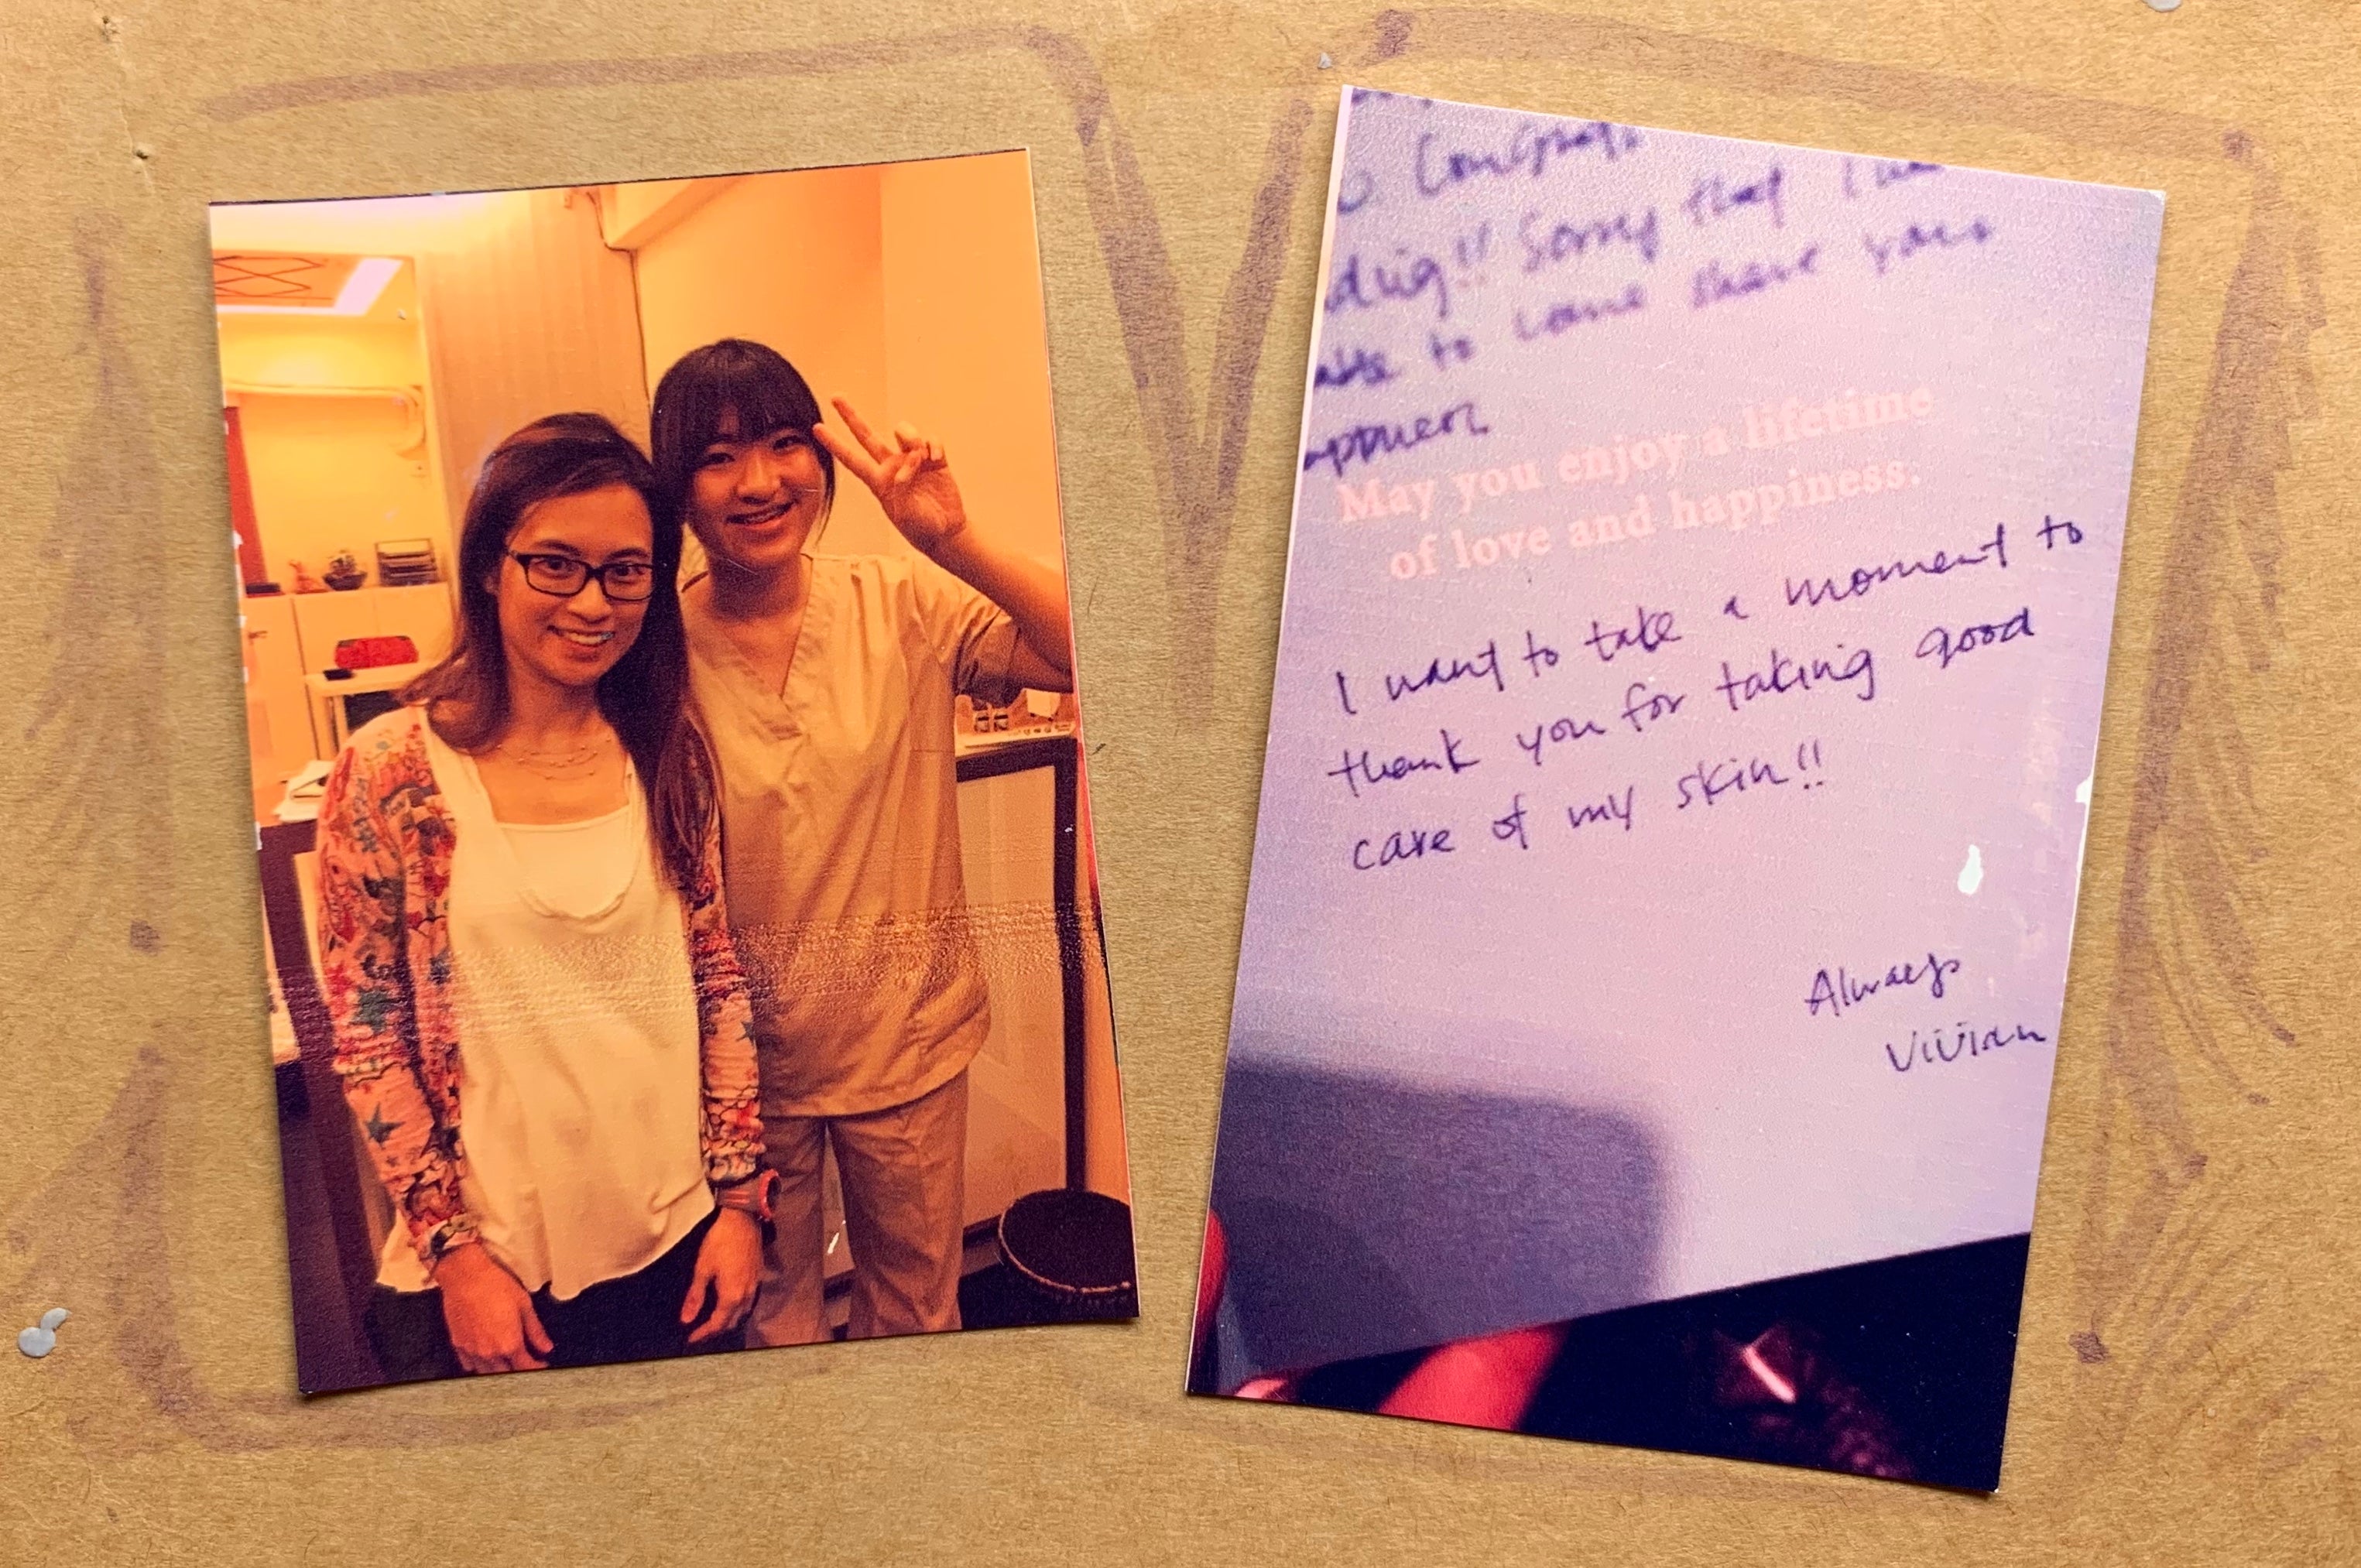 Congrats
Sorry that I
to come share your
May you enjoy a lifetime
of love and happiness.
I want to take a moment to
thank you for taking good
care of my skin!!
Always
Vivian